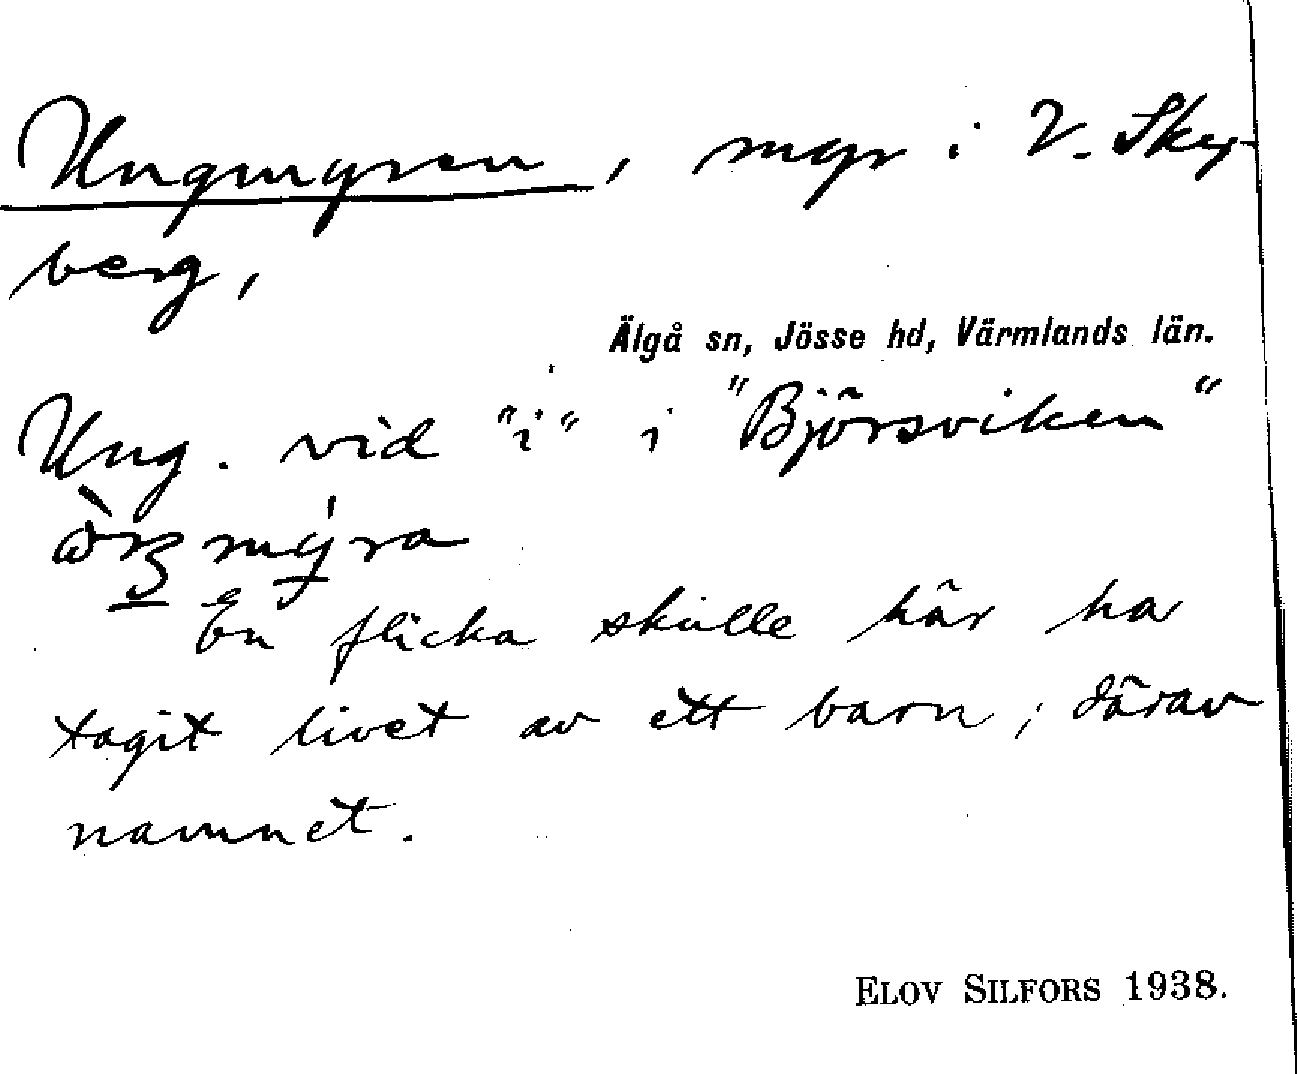 Ungmyren, myr i V. Sky-
berg,
Älgå sn, Jösse hd, Värmlands län.
Ung. vid "i" i "Björsviken"
myra
En flicka skulle här ha
tagit livet av ett barn; därav
namnet.
ELOV SILFORS 1938.